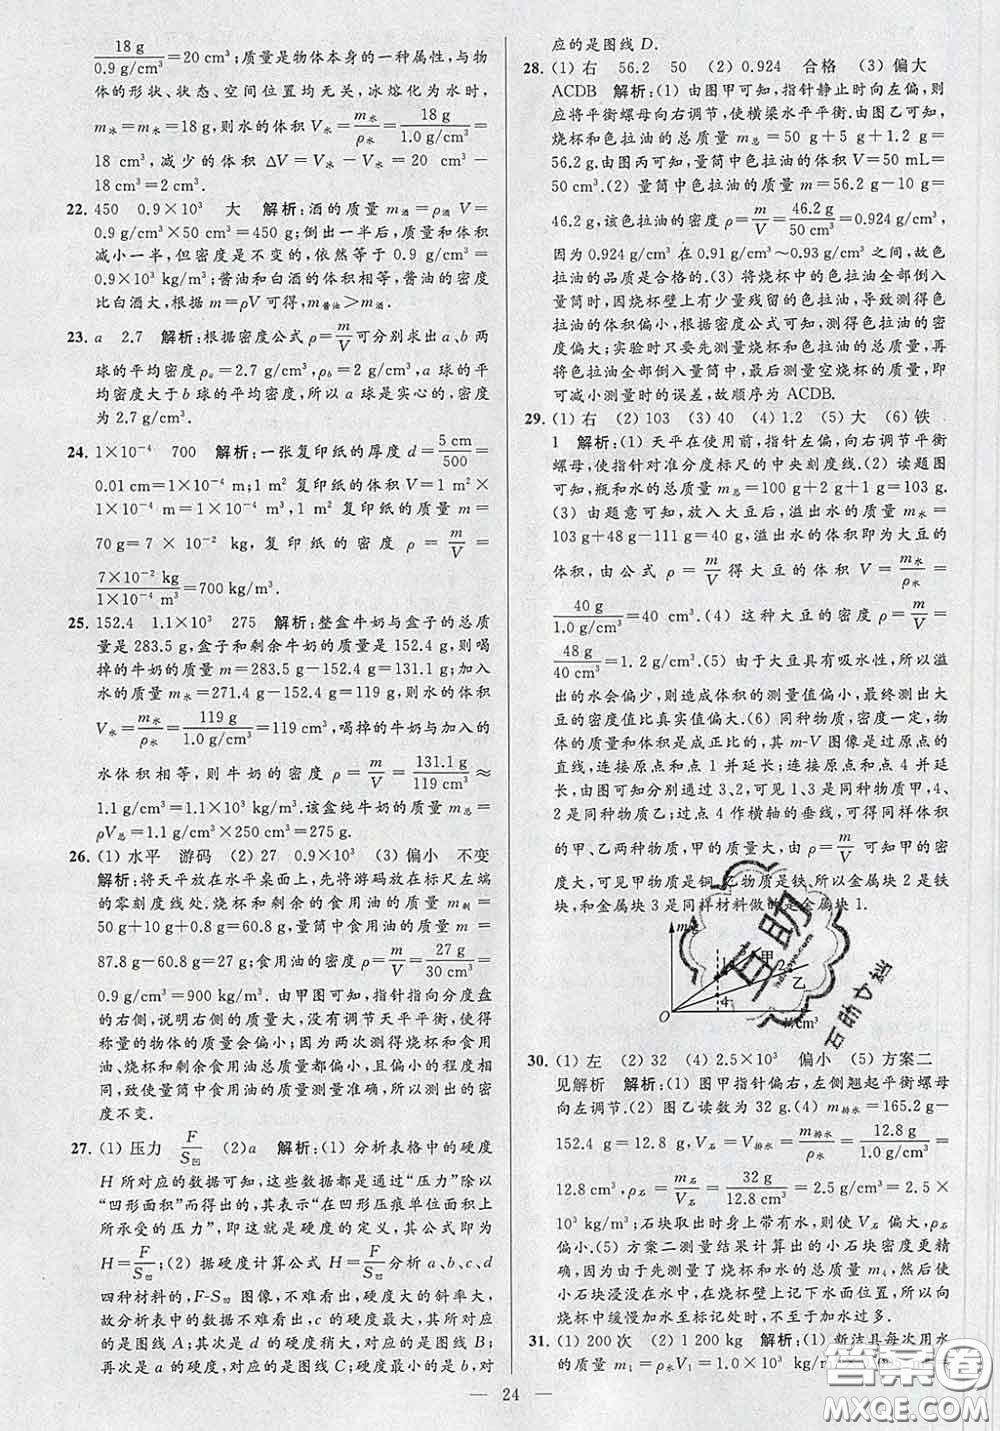 18 g
0.9 g/cm³ =20 cm³;质量是物体本身的一种属性,与物
体的形状、状态、空间位置均无关,冰熔化为水时,
m水=m冰=18 g,则水的体积 V水=m水/ρ水=18 g/1.0 g/cm³=
18 cm³,减少的体积 ΔV=V冰-V水=20 cm³-
18 cm³=2 cm³.
22. 450 0.9×10³ 大 解析:酒的质量 m酒=ρ酒 V=
0.9 g/cm³×50 cm³=450 g;倒出一半后,质量和体积
减小一半,但密度是不变的,依然等于 0.9 g/cm³=
0.9×10³ kg/m³;酱油和白酒的体积相等,酱油的密度
比白酒大,根据 m=ρV 可得,m酱油>m酒.
23. a 2.7 解析:根据密度公式 ρ=m/V可分别求出 a、b 两
球的平均密度 ρa=2.7 g/cm³,ρb=2 g/cm³,a 球的平均
密度大于 b 球的平均密度,所以 a 球是实心的,密度
为 2.7 g/cm³.
24. 1×10⁻⁴ 700 解析:一张复印纸的厚度 d=5 cm/500=
0.01 cm=1×10⁻⁴ m;1 m² 复印纸的体积 V=1 m²×
1×10⁻⁴ m=1×10⁻⁴ m³,1 m² 复印纸的质量 m=
70 g=7 × 10⁻² kg,复印纸的密度 ρ = m/V =
7×10⁻² kg/1×10⁻⁴ m³=700 kg/m³.
25. 152.4 1.1×10³ 275 解析:整盒牛奶与盒子的总质
量是 283.5 g,盒子和剩余牛奶的质量是 152.4 g,则喝
掉的牛奶的质量 m=283.5 g-152.4 g=131.1 g;加入
水的质量 m水=271.4 g-152.4 g=119 g,则水的体积
V水=m水/ρ水=119 g/1.0 g/cm³=119 cm³,喝掉的牛奶与加入的
水体积相等,则牛奶的密度 ρ=m/V=131.1 g/119 cm³≈
1.1 g/cm³=1.1×10³ kg/m³.该盒纯牛奶的质量 m总=
ρV总=1.1 g/cm³×250 cm³=275 g.
26. (1) 水平 游码 (2) 27 0.9×10³ (3) 偏小 不变
解析:将天平放在水平桌面上,先将游码放在标尺左端
的零刻度线处.烧杯和剩余的食用油的质量 m剩=
50 g+10 g+0.8 g=60.8 g,量筒中食用油的质量 m=
87.8 g-60.8 g=27 g;食用油的密度 ρ=m/V=27 g/30 cm³=
0.9 g/cm³=900 kg/m³.由甲图可知,指针指向分度盘
的右侧,说明右侧的质量大,没有调节天平平衡,使得
称量的物体的质量会偏小;因为两次测量中烧杯和食用
油、烧杯和剩余食用油总质量都偏小,且偏小程度相
同,致使量筒中食用油的质量测量准确,所以测出的密
度不变.
27. (1) 压力 F/S凹 (2)a 解析:(1) 分析表格中的硬度
H 所对应的数据可知,这些数据都是通过“压力”除以
“凹形面积”而得出的,其表示“在凹形压痕单位面积上
所承受的压力”,即这就是硬度的定义,其公式即为
H=F/S凹;(2) 据硬度计算公式 H=F/S凹分析 a、b、c、d
四种材料的,F-S凹 图像,不难看出,硬度大的斜率大,
故分析表中的数据不难看出,c 的硬度最大,其所对应
的是图线 A;其次是 d 的硬度稍大,对应的是图线 B;
再次是 a 的硬度,对应的是图线 C;硬度最小的是 b,对
应的是图线 D.
28. (1) 右 56.2 50 (2) 0.924 合格 (3) 偏大
ACDB 解析:(1) 由图甲可知,指针静止时向左偏,则
应将平衡螺母向右调节,使横梁水平平衡.由图乙可知,
烧杯和色拉油的总质量 m总=50 g+5 g+1.2 g=
56.2 g.由图丙可知,量筒中色拉油的体积 V=50 mL=
50 cm³.(2) 量筒中色拉油的质量 m=56.2 g-10 g=
46.2 g,该色拉油的密度 ρ=m/V=46.2 g/50 cm³=0.924 g/cm³,
因为 0.924 g/cm³ 在 0.91 g/cm³~0.93 g/cm³ 之间,故色
拉油的品质是合格的.(3) 将烧杯中的色拉油全部倒入
量筒时,因烧杯壁上有较多残留的色拉油,导致测得色
拉油的体积偏小,根据密度公式可知,测得色拉油的密度
偏大;实验时只要先测量烧杯和色拉油的总质量,再将
烧杯中的色拉油全部倒入量筒中,最后测量空烧杯的质量,
可减小测量时的误差,故顺序为 ACDB.
29. (1) 右 (2) 103 (3) 40 (4) 1.2 (5) 大 (6) 铁
1 解析:(1) 天平在使用前,指针左偏,向右调节平衡
螺母,使指针对准分度标尺的中央刻度线.(2) 读题图
可知,瓶和水的总质量 m总=100 g+2 g+1 g=103 g.
(3) 由题意可知,放入大豆后,溢出水的质量 m水=
103 g+48 g-111 g=40 g,溢出水的体积即为大豆的
体积,由公式 ρ=m/V 得大豆的体积 V=m水/ρ水=
40 g/1.0 g/cm³=40 cm³.(4) 这种大豆的密度 ρ=m/V=
48 g/40 cm³=1.2 g/cm³.(5) 由于大豆具有吸水性,所以溢
出的水会偏少,则造成体积的测量值偏小,最终测出大
豆的密度值比真实值偏大.(6) 同种物质,密度一定,物
体的质量和体积是成正比的,其 m-V 图像是过原点的
直线,连接原点和点 1 并延长;连接原点和点 4 并延长,
由图可知分别通过 3、2,可见 1、3 是同种物质甲,4、
2 是同种物质乙;过点 4 作横轴的垂线,可得同样体积
的甲、乙两种物质,甲的质量大,由 ρ=m/V可知甲的密
度大,可见甲物质是铜,乙物质是铁.所以金属块 2 是铁
块,和金属块 3 是同样材料做的是金属块 1.
甲
乙
4
O
30. (1) 左 (2) 32 (4) 2.5×10³ 偏小 (5) 方案二
见解析 解析:(1) 图甲指针偏右,左侧翘起平衡螺母
向左调节.(2) 图乙读数为 32 g.(4) m排水=165.2 g-
152.4 g=12.8 g,V石=V排水=m排水/ρ水=12.8 g/1.0 g/cm³=
12.8 cm³,ρ石=m石/V石=32 g/12.8 cm³=2.5 g/cm³=2.5×
10³ kg/m³;石块取出时身上带有水,则 V石 偏大,ρ石
偏小.(5) 方案二测量结果计算出的小石块密度更精
确,因为由于先测量了烧杯和水的总质量 m₄,然后将
小石块浸没在水中,在烧杯壁上记下水面位置,所以向
烧杯中缓慢加水至标记处时,不至于加水过多.
31. (1) 200 次 (2) 1 200 kg 解析:(1) 新洁具每次用水
的质量 m₁=ρ水V₁=1.0×10³ kg/m³
— 24 —
答案圈
MXQE.COM